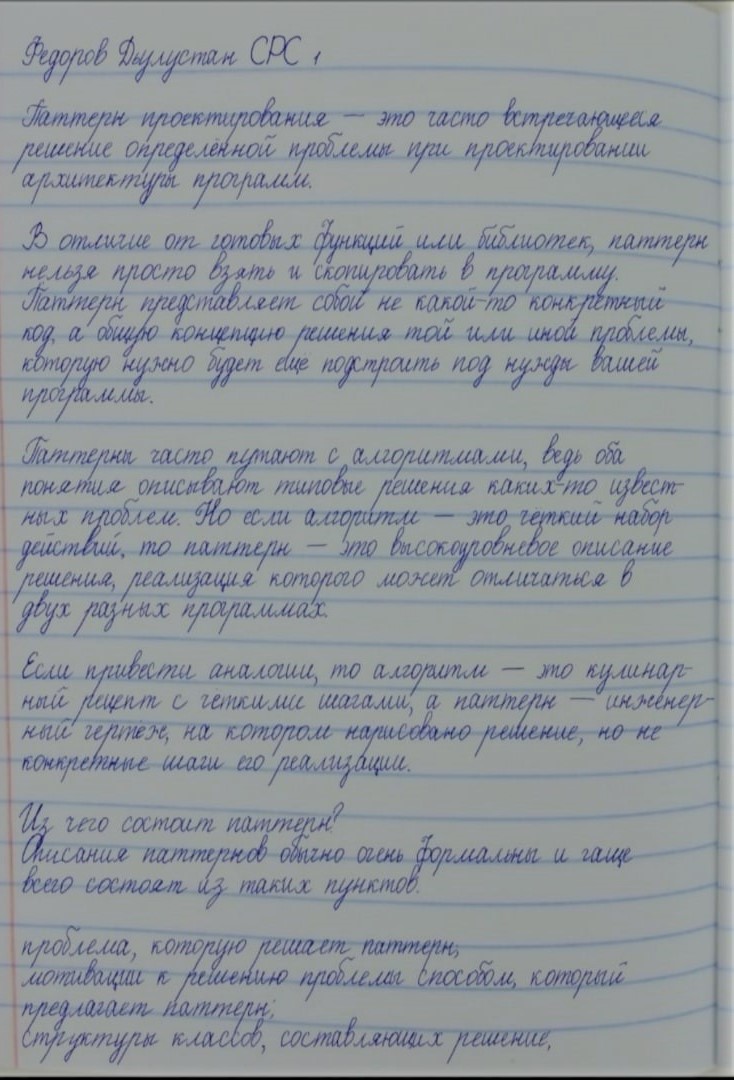 Федоров Дьулустан СРС 1
Паттерн проектирования — это часто встречающееся
решение определённой проблемы при проектировании
архитектуры программ.
В отличие от готовых функций или библиотек, паттерн
нельзя просто взять и скопировать в программу.
Паттерн представляет собой не какой-то конкретный
код, а общую концепцию решения той или иной проблемы,
которую нужно будет ещё подстроить под нужды вашей
программы.
Паттерны часто путают с алгоритмами, ведь оба
понятия описывают типовые решения каких-то извест-
ных проблем. Но если алгоритм — это четкий набор
действий, то паттерн — это высокоуровневое описание
решения, реализация которого может отличаться в
двух разных программах.
Если привести аналогии, то алгоритм — это кулинар-
ный рецепт с чёткими шагами, а паттерн — инженер-
ный чертёж, на котором нарисовано решение, но не
конкретные шаги его реализации.
Из чего состоит паттерн?
Описания паттернов обычно очень формальны и чаще
всего состоят из таких пунктов:
проблема, которую решает паттерн;
мотивации к решению проблемы способом, который
предлагает паттерн;
структуры классов, составляющих решение;